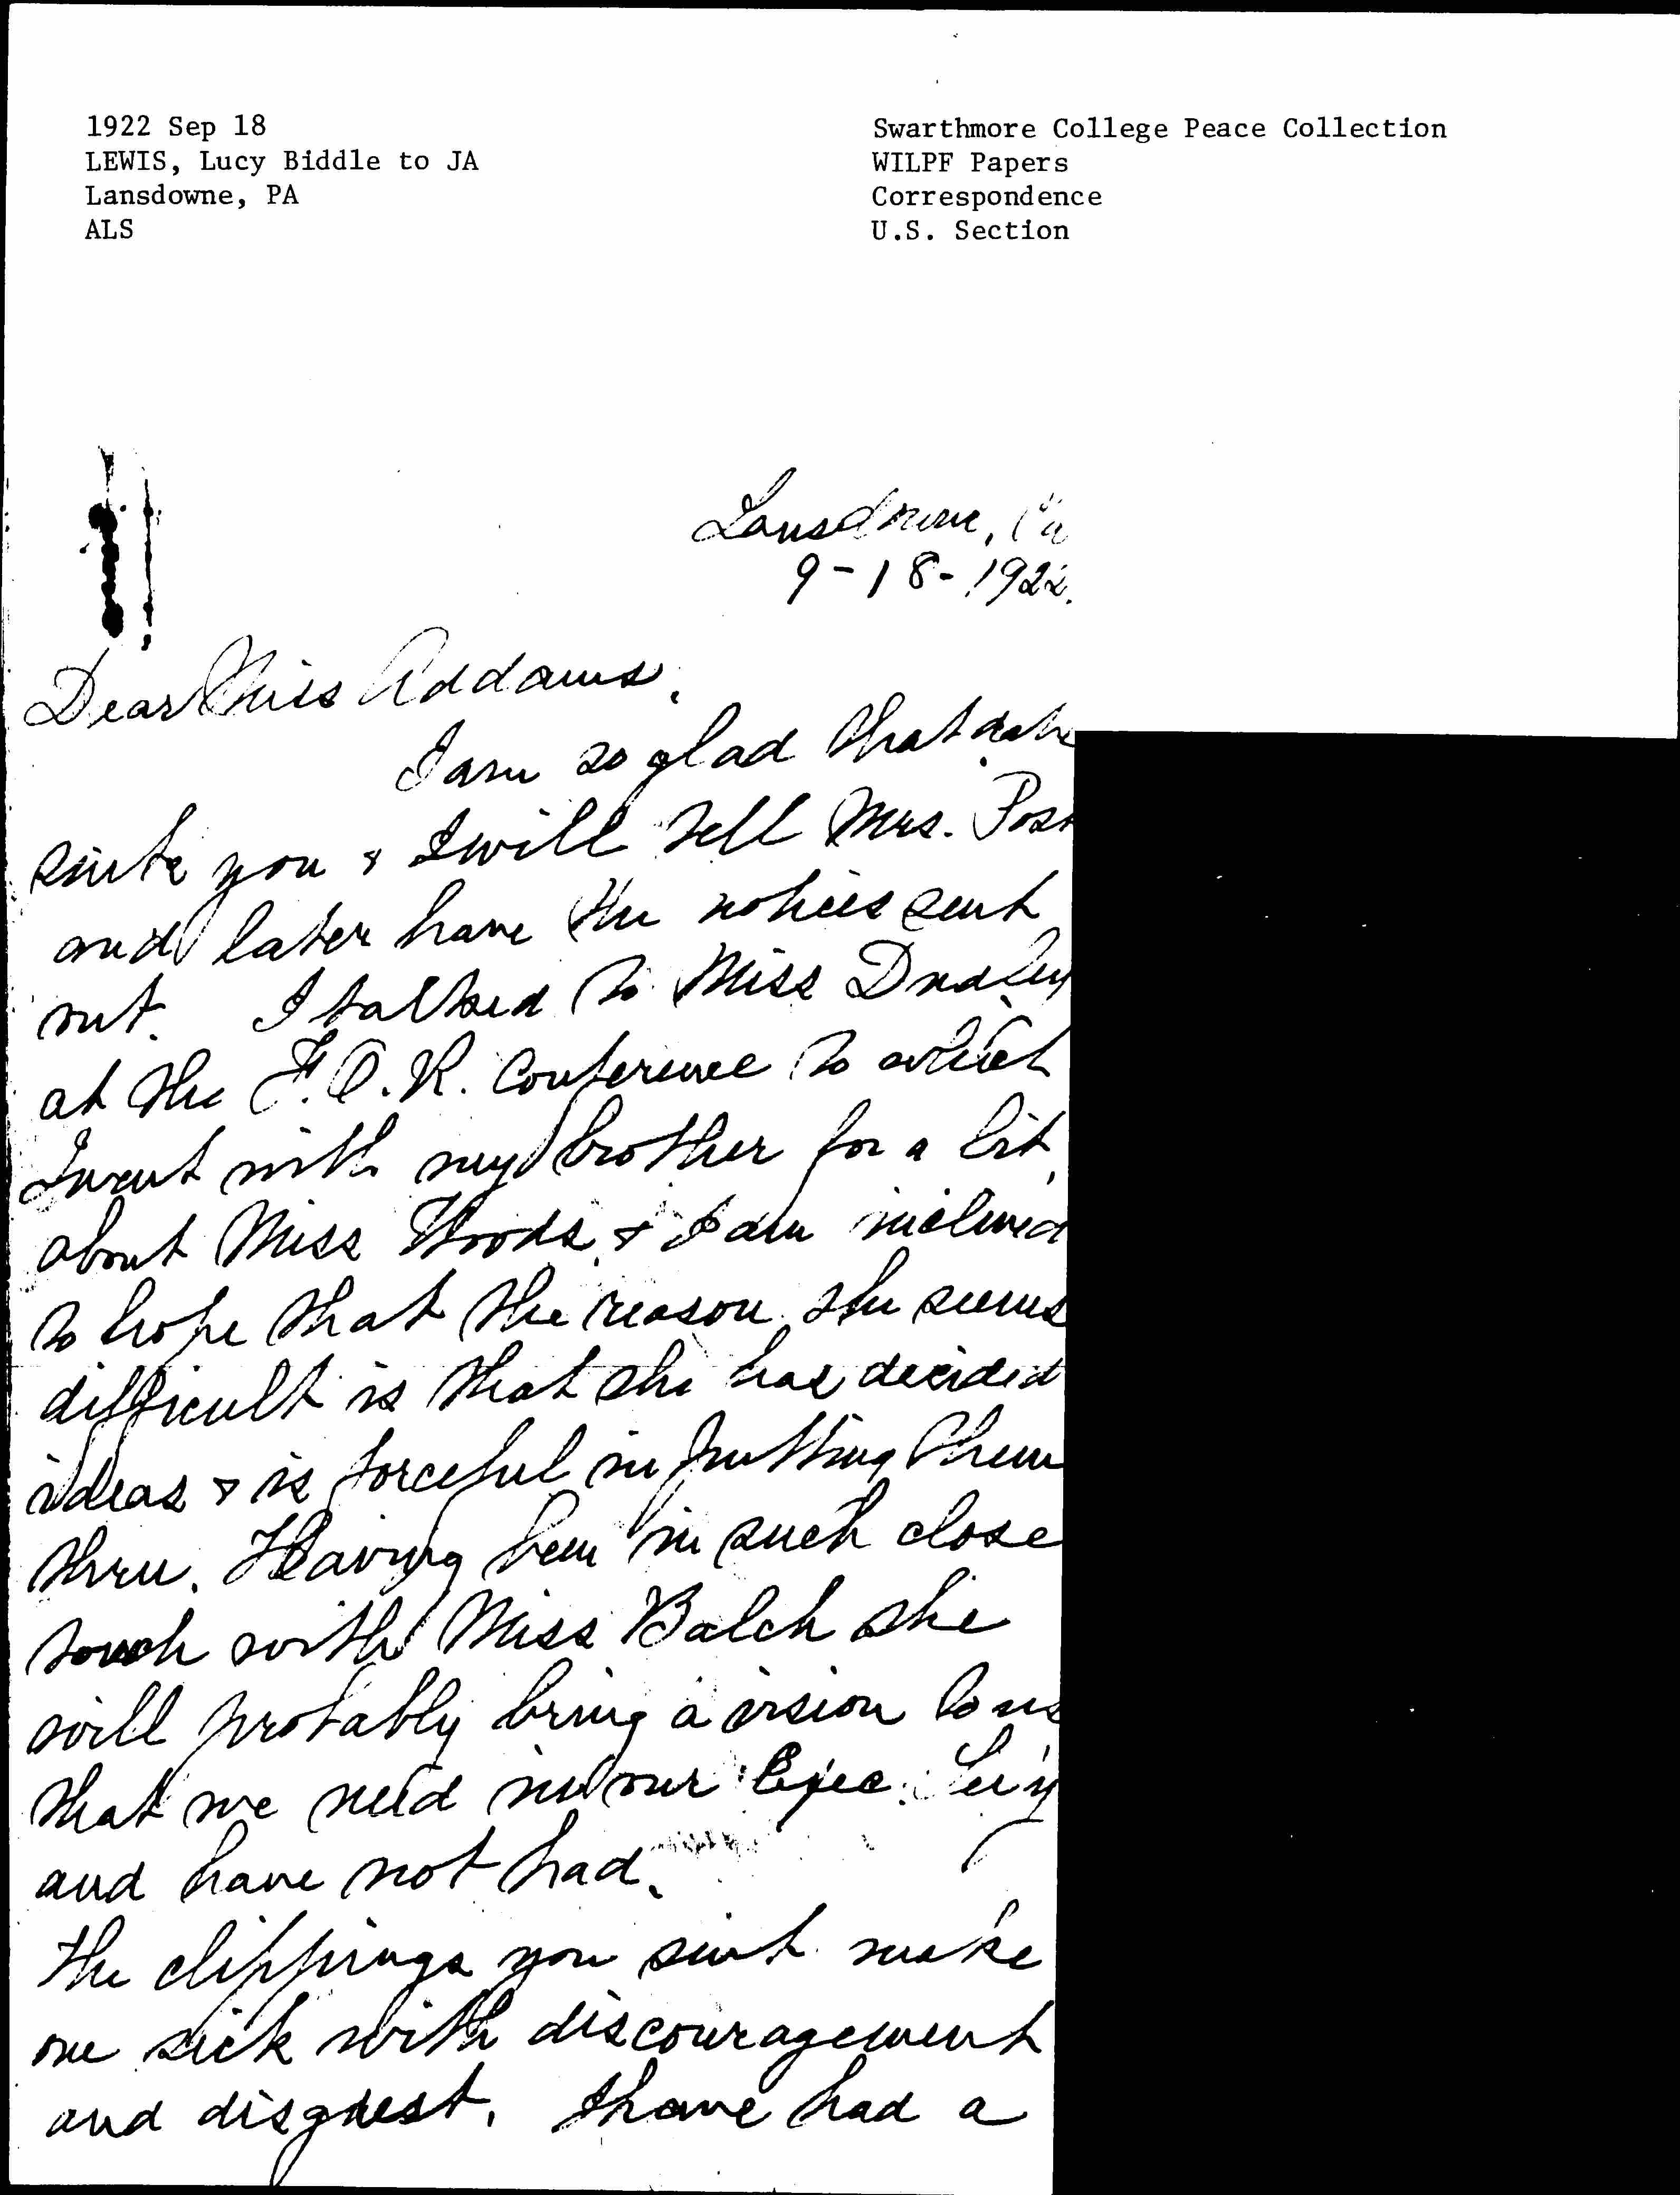 1922 Sep 18
LEWIS, Lucy Biddle to JA
Lansdowne, PA
ALS
Swarthmore College Peace Collection
WILPF Papers
Correspondence
U.S. Section
Lansdowne, Pa
9-18-1922.
Dear Miss Addams,
I am so glad that date
suits you & I will tell Mrs. Post
and later have the notices sent
out. I talked to Miss Dudley
at the F.O.R. Conference to which
I went with my brother for a bit,
about Miss Woods, & I am inclined
to hope that the reason she seems
difficult is that she has decided
ideas & is forceful in putting them
thru. Having been in such close
touch with Miss Balch she
will probably bring a vision to us
that we need in our Exec. Sec'y
and have not had.
The clippings you sent make
one sick with discouragement
and disgust. I have had a